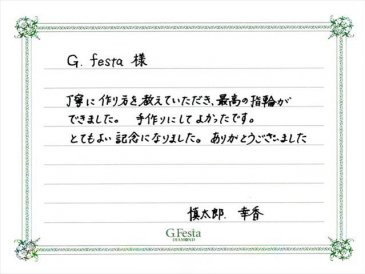 G. festa 様
丁寧に作り方を教えていただき、最高の指輪が
できました。 手作りにしてよかったです。
とてもよい記念になりました。 ありがとうございました
慎太郎. 幸香
G.Festa
DIAMOND